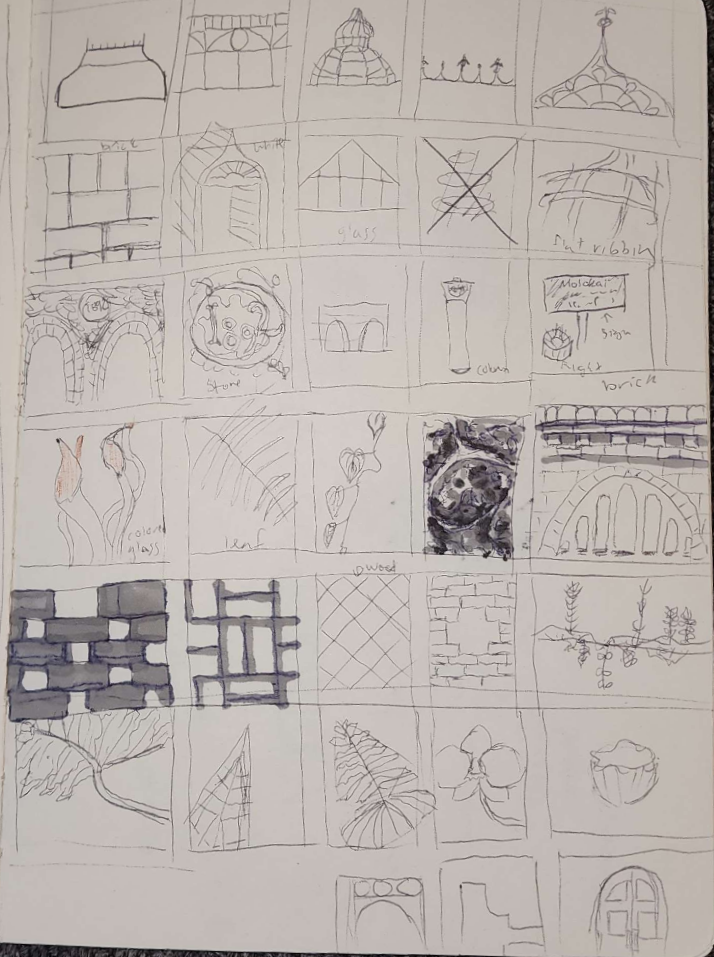 brick
white
glass
flat ribbin
Stone
column
Molokai
sign
Right
brick
colored
glass
leaf
wood